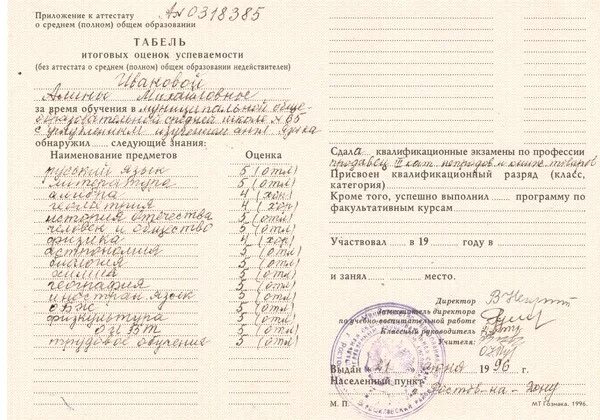 Приложение к аттестату Ал 0318385
о среднем (полном) общем образовании
ТАБЕЛЬ
итоговых оценок успеваемости
(без аттестата о среднем (полном) общем образовании недействителен)
Ивановой
Алины Михайловне
за время обучения в муниципальной обще-
образовательной средней школе №65
с углубленным изучением англ языка
обнаружил ..... следующие знания:
Наименование предметов Оценка
русский язык 5 (отл)
литература 5 (отл)
алгебра 4 (хор)
геометрия 4 (хор)
история отечества 5 (отл)
человек и общество 5 (отл)
физика 4 (хор)
астрономия 5 (отл)
биология 5 (отл)
химия 5 (отл)
география 5 (отл)
иностран язык 5 (отл)
ОБЖ 5 (отл)
физкультура 5 (отл)
ОИВТ 5 (отл)
трудовое обучение 5 (отл)
Сдала квалификационные экзамены по профессии
продавец III кат. непродов. и товаров
Присвоен квалификационный разряд (класс,
категория)
Кроме того, успешно выполнил программу по
факультативным курсам
Участвовал в 19 году в
и занял место.
Директор
Заместитель директора
по учебно-воспитательной работе
Классный руководитель
Учителя:
Выдан 21 июня 1996 г.
Населенный пункт Ростов-на-Дону
М. П. МТ Гознака. 1996.